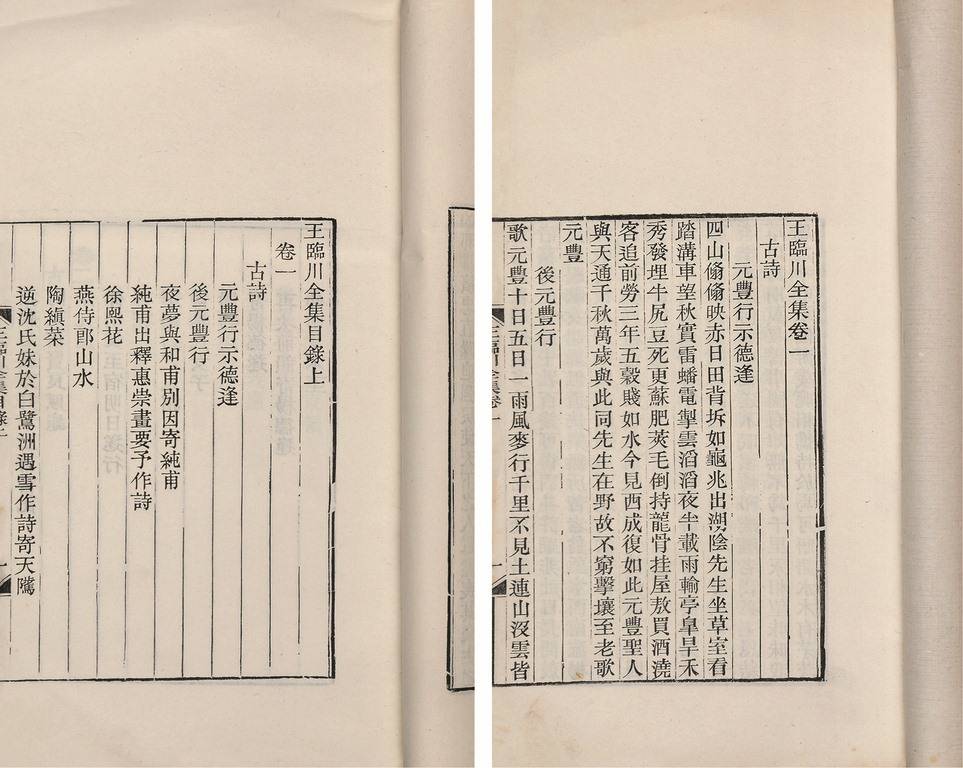 王臨川全集目錄上
卷一
古詩
元豐行示德逢
後元豐行
夜夢與和甫別因寄純甫
純甫出釋惠崇畫要予作詩
徐熙花
燕侍郎山水
陶縝菜
逆沈氏妹於白鷺洲遇雪作詩寄天隲
王臨川全集卷一
古詩
元豐行示德逢
四山翛翛映赤日田背坼如龜兆出湖陰先生坐草室看
踏溝車望秋實雷蟠電掣雲滔滔夜半載雨輸亭皐旱禾
秀發埋牛尻豆死更蘇肥莢毛倒持龍骨挂屋敖買酒澆
客追前勞三年五穀賤如水今見西成復如此元豐聖人
與天通千秋萬歲與此同先生在野故不窮擊壤至老歌
元豐
後元豐行
歌元豐十日五日一雨風麥行千里不見土連山沒雲皆